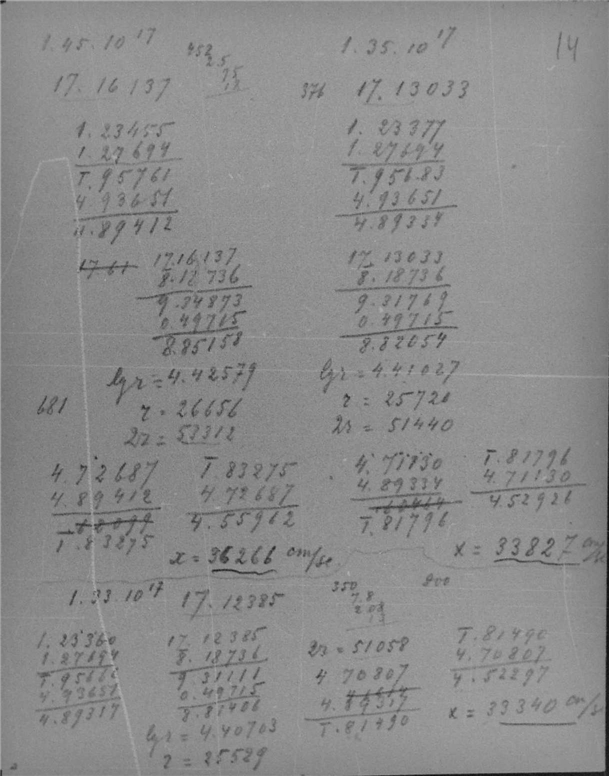 1.45.10¹⁷
452
25
75
18
17.16137
1.23455
1.27694
T.95761
4.93651
4.89412
17.61
17.16137
8.18736
9.34873
0.49715
8.85158
lgr = 4.42579
681
r = 26656
2r = 53312
4.72687
4.89412
T.83275
T.83275
4.72687
4.55962
x = 36266 cm/se
1.35.10¹⁷
14
376
17.13033
1.23377
1.27694
T.95683
4.93651
4.89334
17.13033
8.18736
9.31769
0.49715
8.82054
lgr = 4.41027
r = 25720
2r = 51440
4.71130
4.89334
T.81796
T.81796
4.71130
4.52926
x = 33827 cm/se
1.33.10¹⁷
17.12385
350
7.8
208
13
200
1.23360
1.27694
T.95666
4.93651
4.89317
17.12385
8.18736
9.31111
0.49715
8.81406
lgr = 4.40703
r = 25529
2r = 51058
4.70807
4.89317
T.81490
T.81490
4.70807
4.52297
x = 33340 cm/s